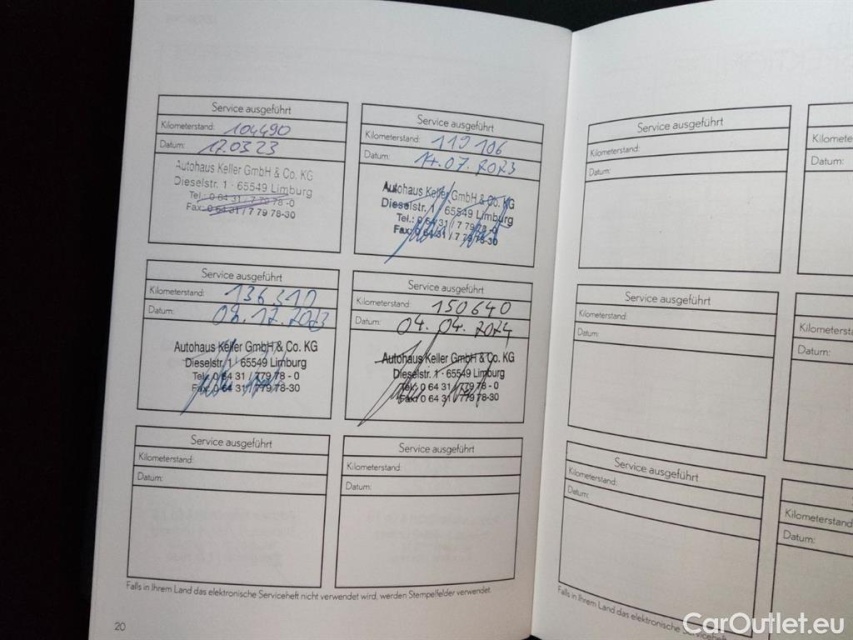 Service ausgeführt
Kilometerstand: 104490
Datum: 17.03.23
Autohaus Keller GmbH & Co. KG
Dieselstr. 1 · 65549 Limburg
Tel.: 0 64 31 / 7 79 78 -0
Fax: 0 64 31 / 7 79 78-30
Service ausgeführt
Kilometerstand: 119106
Datum: 14.07.2023
Autohaus Keller GmbH & Co. KG
Dieselstr. 1 · 65549 Limburg
Tel.: 0 64 31 / 7 79 78 -0
Fax: 0 64 31 / 7 79 78-30
Service ausgeführt
Kilometerstand: 136310
Datum: 08.12.2023
Autohaus Keller GmbH & Co. KG
Dieselstr. 1 · 65549 Limburg
Tel.: 0 64 31 / 779 78 - 0
Fax: 0 64 31 / 779 78-30
Service ausgeführt
Kilometerstand: 150640
Datum: 04.04.2024
Autohaus Keller GmbH & Co. KG
Dieselstr. 1 · 65549 Limburg
Tel.: 0 64 31 / 779 78 - 0
Fax: 0 64 31 / 779 78-30
Service ausgeführt
Kilometerstand:
Datum:
Service ausgeführt
Kilometerstand:
Datum:
Falls in Ihrem Land das elektronische Serviceheft nicht verwendet wird, werden Stempelfelder verwendet.
20
Service ausgeführt
Kilometerstand:
Datum:
Kilometer
Datum:
Service ausgeführt
Kilometerstand:
Datum:
Kilometerst
Datum:
Service ausgeführt
Kilometerstand:
Datum:
Kilometerstand
Datum:
Falls in Ihrem Land das elektronische
CarOutlet.eu